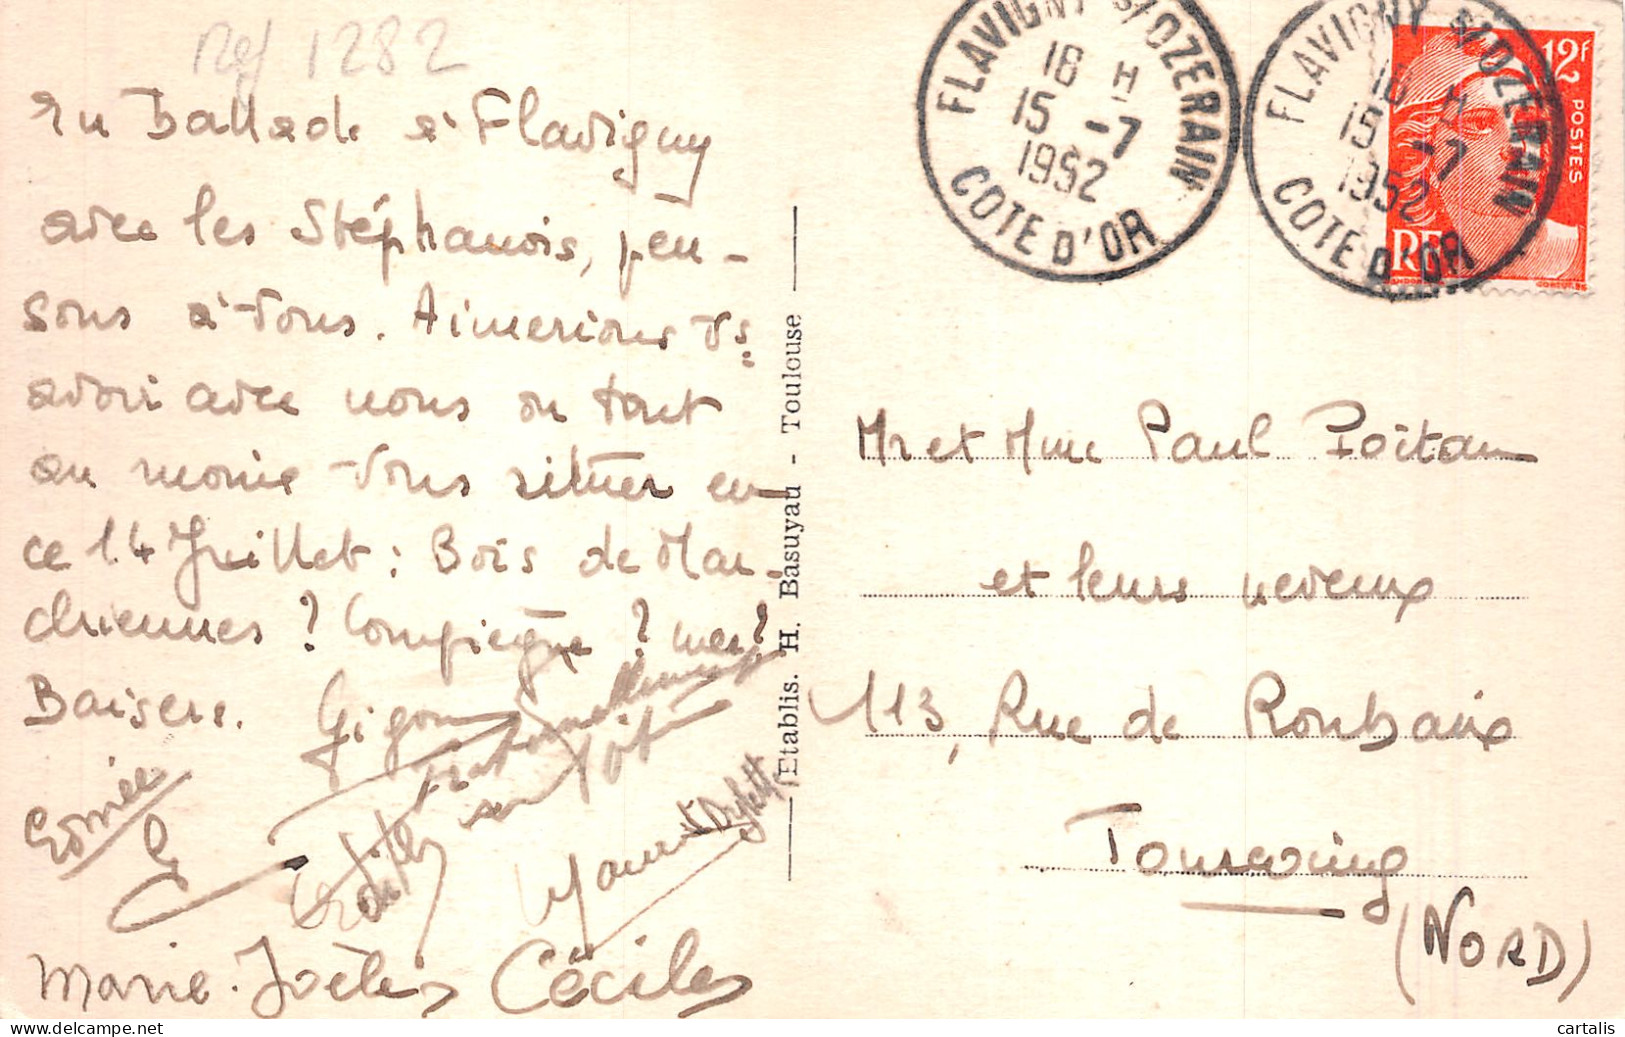 Ref 1282
En Ballade à Flavigny
avec les Stéphanois, pen-
sons à vous. Aimerions vs
avoir avec nous ou tout
au moins vous situer en
ce 14 Juillet : Bois de Mar-
chiennes ? Compiègne ? mer ?
Baisers. Gigou
fraternellement
Edmée
Marie-Joëlle Cécile
Etablis. H. Basuyau - Toulouse
FLAVIGNY S/OZERAIN
18 H
15 -7
1952
COTE D'OR
FLAVIGNY S/OZERAIN
18 H
15 -7
1952
COTE D'OR
12F
POSTES
RF
Mr et Mme Paul Poitau
et leurs neveux
113, Rue de Roubaix
Tourcoing
(NORD)
cartalis